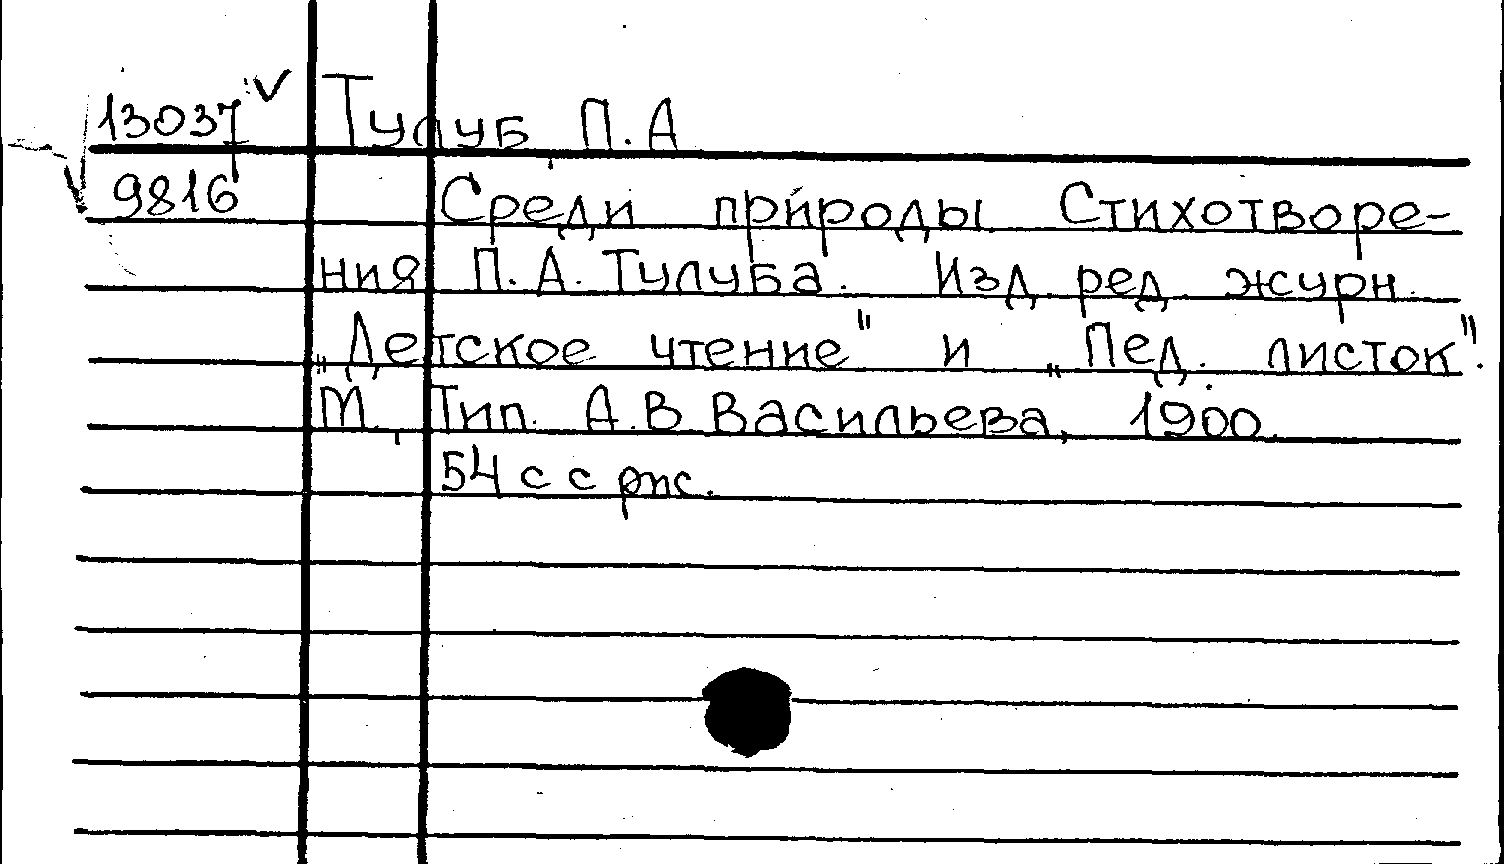 13037 Тулуб, П.А
9816 Среди природы. Стихотворе-
ния П.А. Тулуба. Изд. ред. журн.
„Детское чтение" и „Пед. листок".
М., Тип. А.В. Васильева, 1900.
54 с с рис.